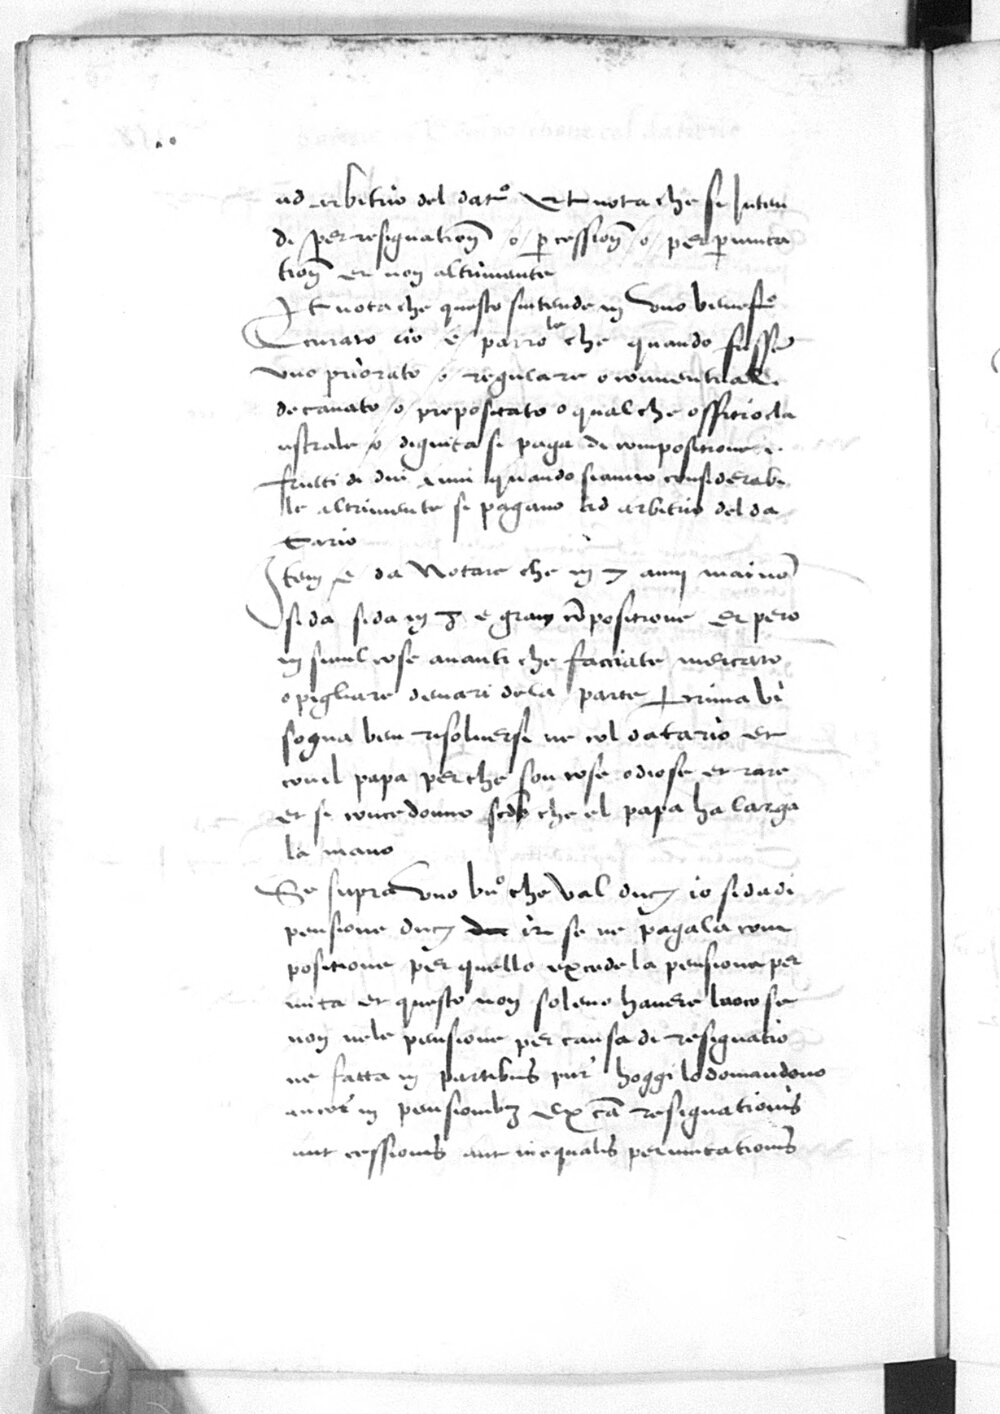 ad arbitrio del dat.º Et nota che si Inten
di per resignation̄ o p̲ cession̄ o per p̲muta
tion̄ et non altrimente
Et nota che questo sintende in uno benef.º
Curato cio e parro.le che quando fusse
uno priorato o regulare o conventuale
decanato o prepositato o qualche offitio cla
ustrale o dignita si paga di compositione i
frutti di dui anni quando sianno considerabi
le altrimente si pagano ad arbitrio del da
tario
Item e da Notare che in 7 anni mai no͂
si da si da in 3 e gran co͂positione et pero
in simil cose avanti che facciate mercato
o pigliare denari dela parte prima bi
sogna ben risolverse ne col datario et
con il papa perche son cose odiose et rare
et si concedonno secdo che el papa ha larga
la mano
Se supra uno bn.º che val duc. io si da di
pensione duc. se ne paga la com
positione per quello excede la pensione per
mita et questo non soleno havere luoco se
non nele pensione per causa di resignatio
ne fatta in partibus pur hoggi lo domandono
ancor in pensionibz ex ca͂ resignationis
aut cessionis aut inequalis permutationis